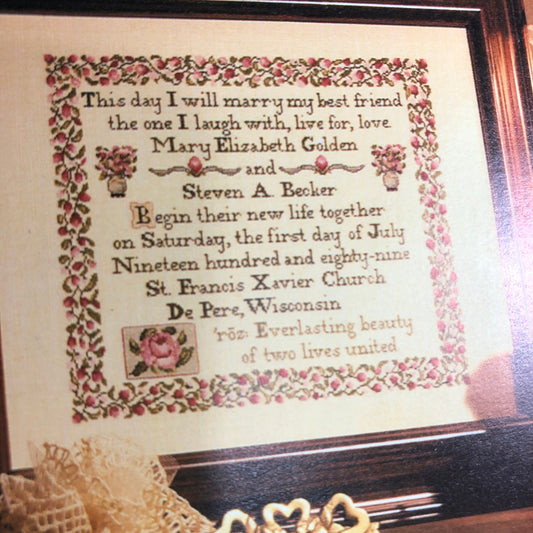 This day I will marry my best friend
the one I laugh with, live for, love.
Mary Elizabeth Golden
and
Steven A. Becker
Begin their new life together
on Saturday, the first day of July
Nineteen hundred and eighty-nine
St. Francis Xavier Church
De Pere, Wisconsin
'rōz: Everlasting beauty
of two lives united